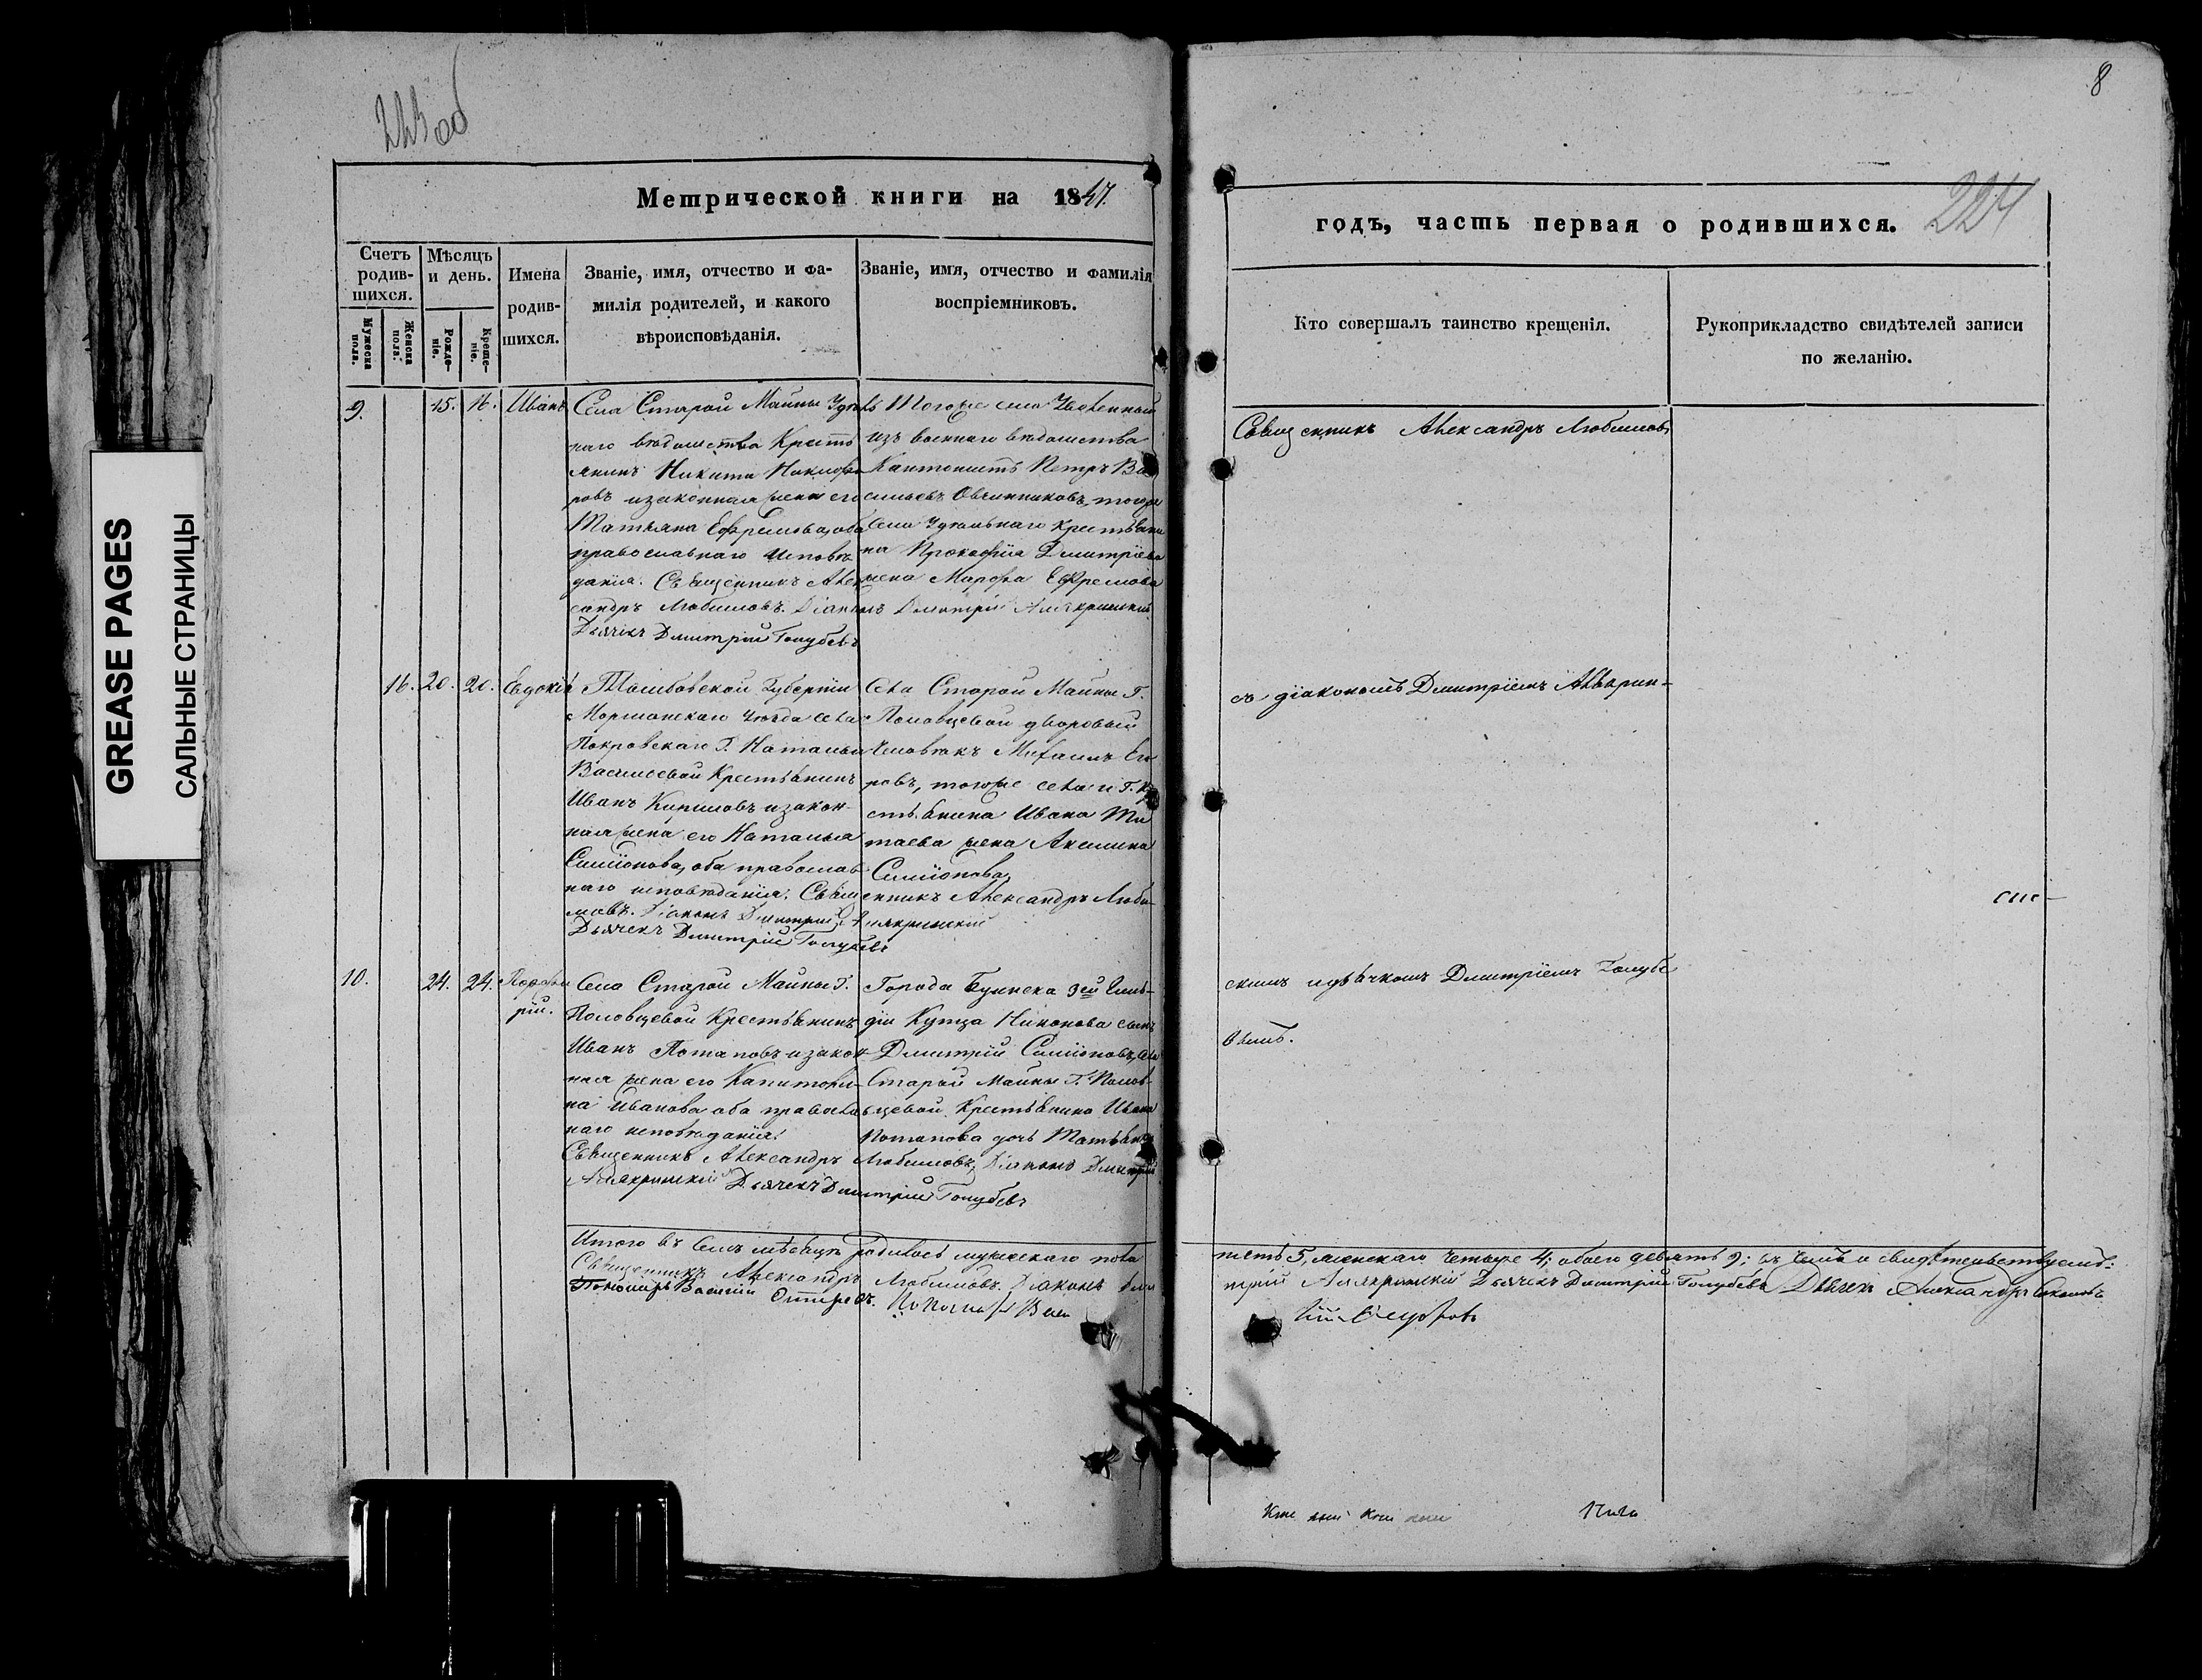 GREASE PAGES
САЛЬНЫЕ СТРАНИЦЫ
223об
8
224
Метрической книги на 1847.
годъ, часть первая о родившихся.
Счетъ родив-шихся.
Мужеска пола.
Женска пола.
Мѣсяцъ и день.
Рожде-ніе.
Креще-ніе.
Имена родив-шихся.
Званіе, имя, отчество и фа-
милія родителей, и какого
вѣроисповѣданія.
Званіе, имя, отчество и фамилія
воспріемниковъ.
Кто совершалъ таинство крещенія.
Рукоприкладство свидѣтелей записи
по желанію.
9. 15. 16. Иванъ
Села Старой Майны Удѣль
наго вѣдомства Кресть
янинъ Никита Никифо
ровъ изаконная жена его
Татьяна Ефремова, оба
православнаго исповѣ
данія. Священникъ Алек
сандръ Любимовъ. Діаконъ Дмитрій
Дьячекъ Дмитрій Голубевъ
Тогоже села Уволенный
изъ военнаго вѣдомства
Кантонистъ Петръ Ва
сильевъ Овчинниковъ, тогоже
Села Удѣльнаго крестьяни
на Прокофія Дмитріева
жена Марфа Ефремова
Священникъ Александръ Любимовъ
16. 20. 20. Евдокія
Тамбовской Губерніи
Моршанскаго Уѣзда села
Покровскаго Г. Натальи
Васильевой Крестьянинъ
Иванъ изакон-
ная жена его Наталья
Симіонова, оба православ
наго исповѣданія. Священникъ Александръ Люби-
мовъ. Діаконъ Дмитрій
Дьячекъ Дмитрій Голубевъ
Села Старой Майны Г.
Половцевой дворовый
Человѣкъ Михаилъ Его
ровъ, тогоже села и Г. Кр
стьянина Ивана Ти
таева жена Акилина
Симіонова,
съ діакономъ Дмитріемъ
10. 24. 24.
рій.
Села Старой Майны Г.
Половцевой Крестьянинъ
Иванъ Потаповъ изакон
ная жена его Капитоли-
на Иванова оба православ
наго исповѣданія.
Священникъ Александръ Любимовъ, Діаконъ Дмитрій
Дьячекъ Дмитрій Голубевъ
Города Буинска 3ей Гиль-
діи Купца Никонова сынъ
Дмитрій Симіоновъ, села
Старой Майны Г. Полов-
цевой Крестьянина Ивана
Потапова дочь Татьяна
скимъ идьячкомъ Дмитріемъ Голубе
вымъ.
Итого въ семъ мѣсяцѣ родилось мужескаго пола
пять 5, женскаго четыре 4; обоего девять 9; въ чемъ и свидѣтельствуемъ:
Священникъ Александръ Любимовъ. Діаконъ Дми
трій Дьячекъ Дмитрій Голубевъ Дьячекъ Александръ
Пономарь Василій